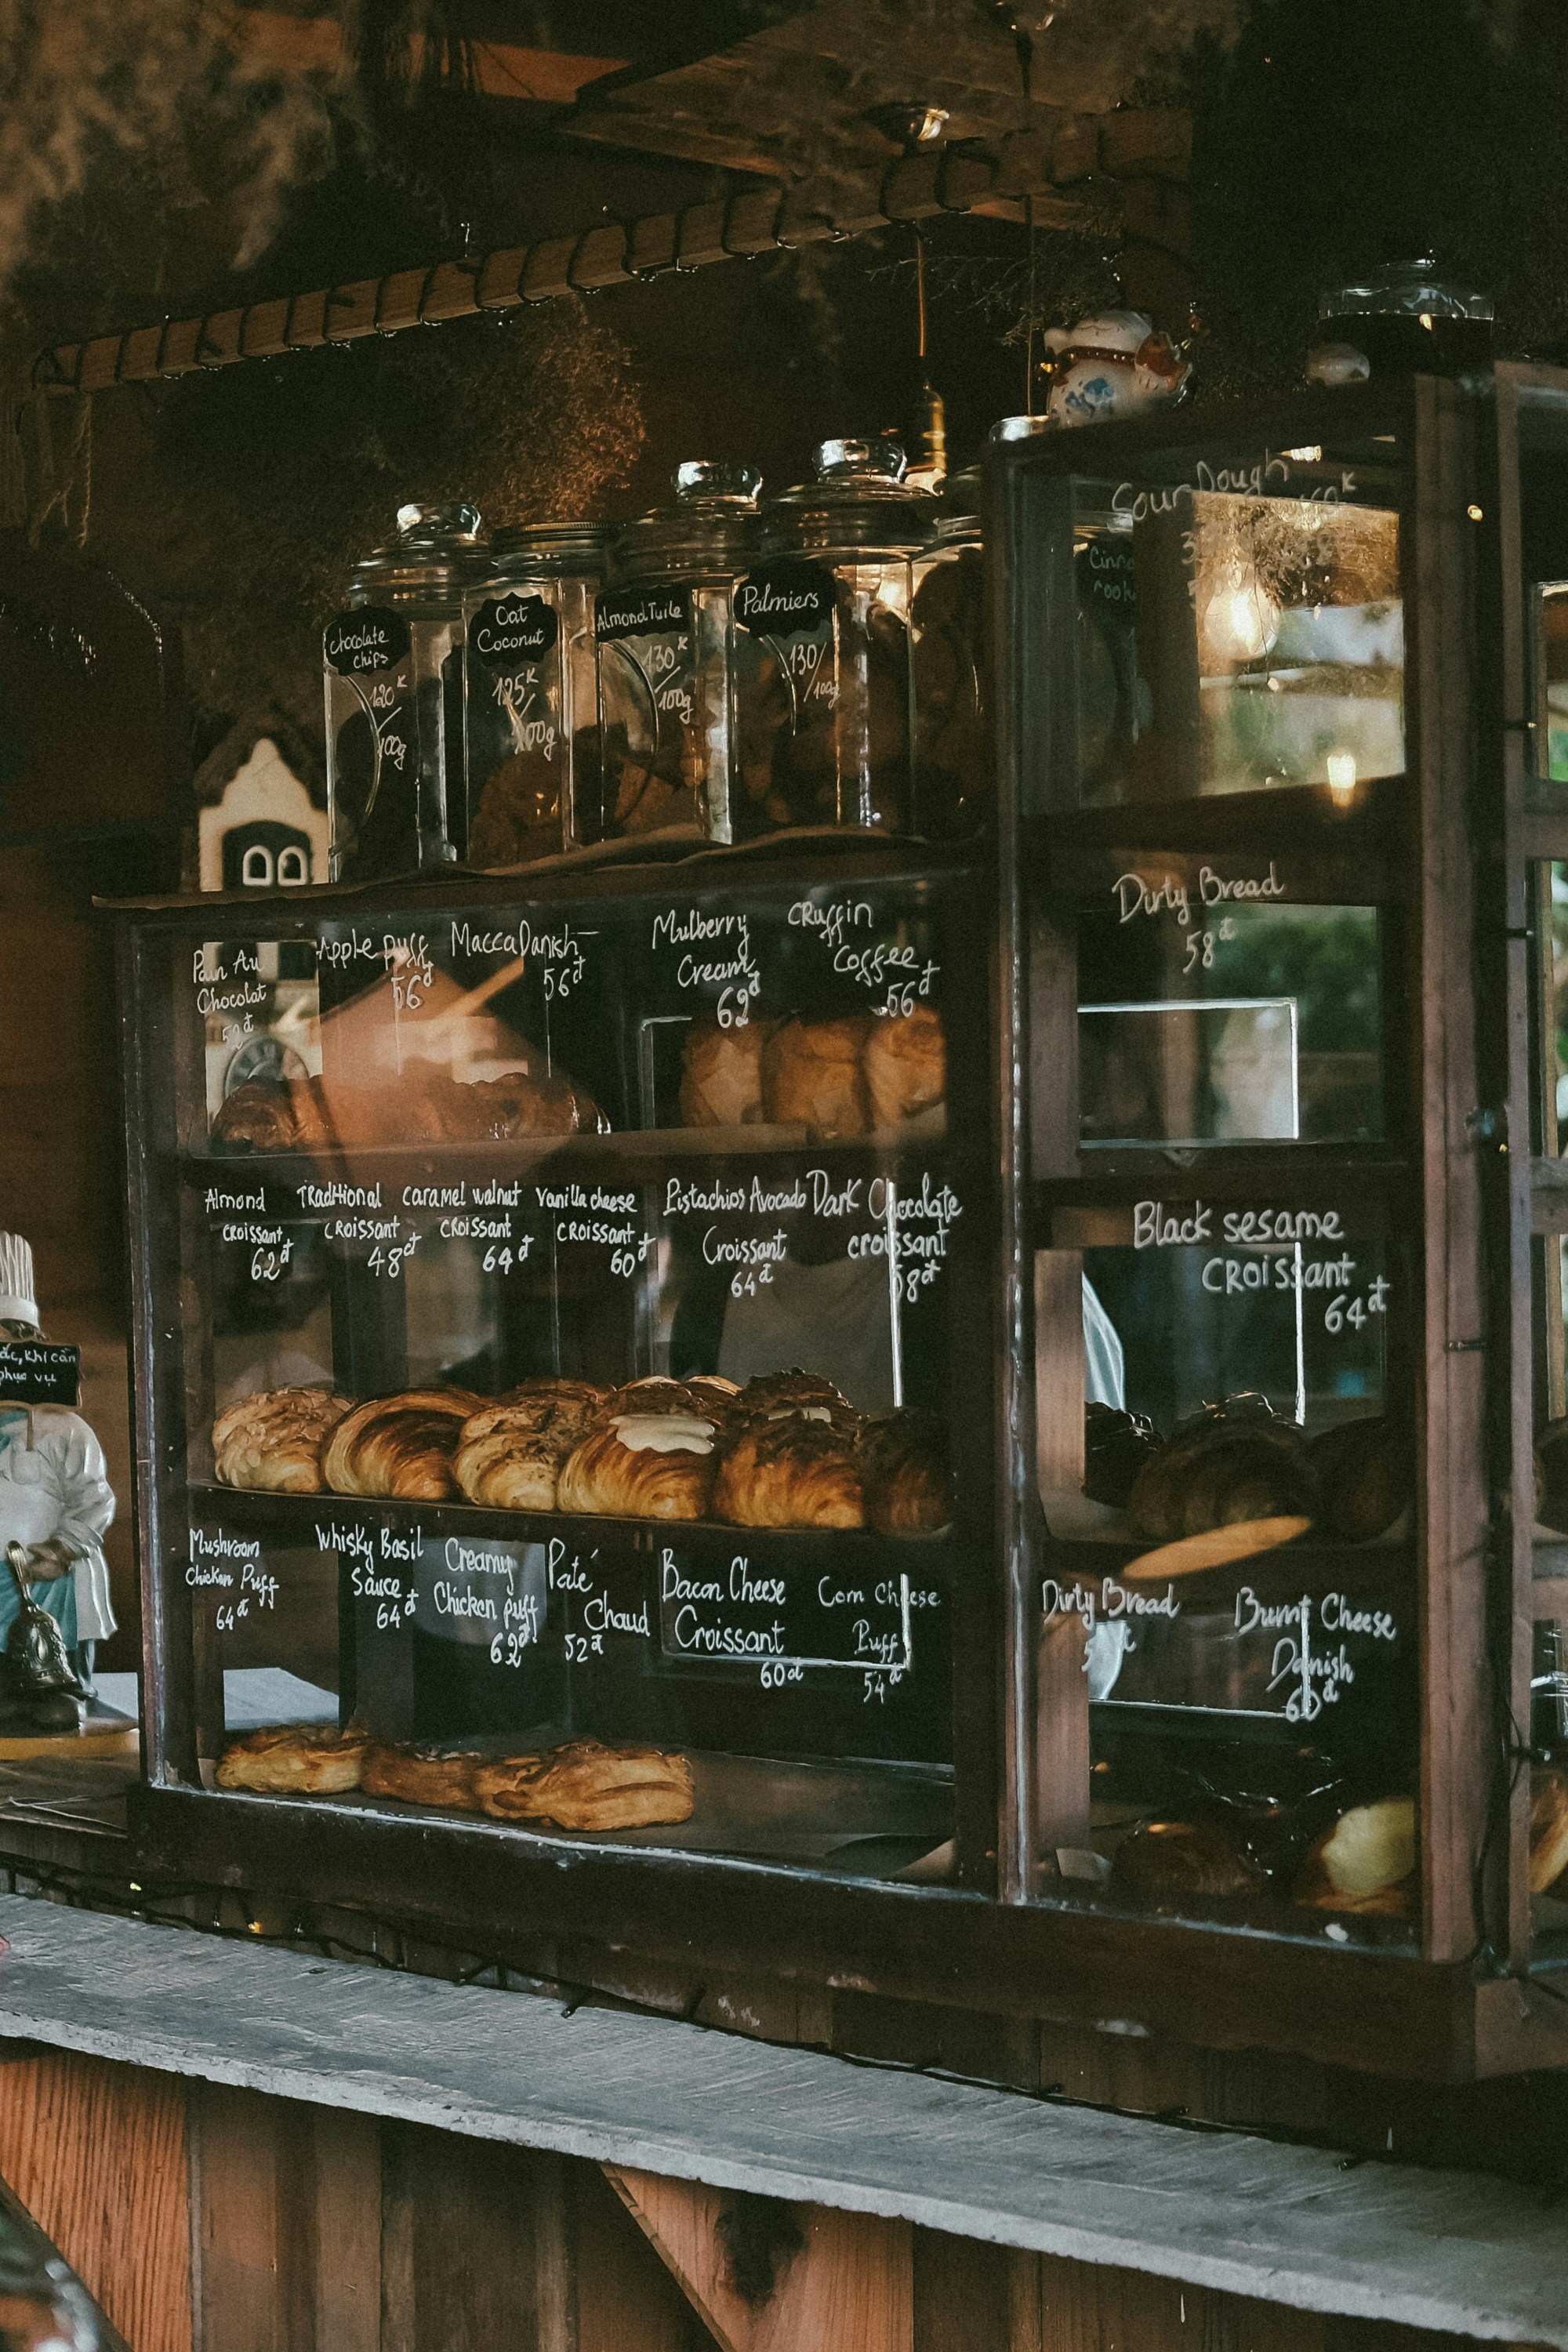 Chocolate
chips
120K/100g
Oat
Coconut
125K/100g
Almond Tuile
130K/100g
Palmiers
130/100g
Sour Dough
Dirty Bread
58đ
Pain Au
Chocolat
52đ
Apple Puff
56đ
Macca Danish
56đ
Mulberry
Cream
62đ
CRuffin
Coffee
56đ
Almond
CROISSANT
62đ
TRADitional
CROISSANT
48đ
caramel walnut
CROISSANT
64đ
Vanilla cheese
CROISSANT
60đ
Pistachios Avocado
Croissant
64đ
Dark Chocolate
croissant
58đ
Black sesame
CROISSANT
64đ
Mushroom
Chicken Puff
64đ
Whisky Basil
Sauce
64đ
Creamy
Chicken puff
62đ
Paté
Chaud
52đ
Bacon Cheese
Croissant
60đ
Corn Cheese
Puff
54đ
Dirty Bread
Burnt Cheese
Danish
60đ
khi cần
phục vụ